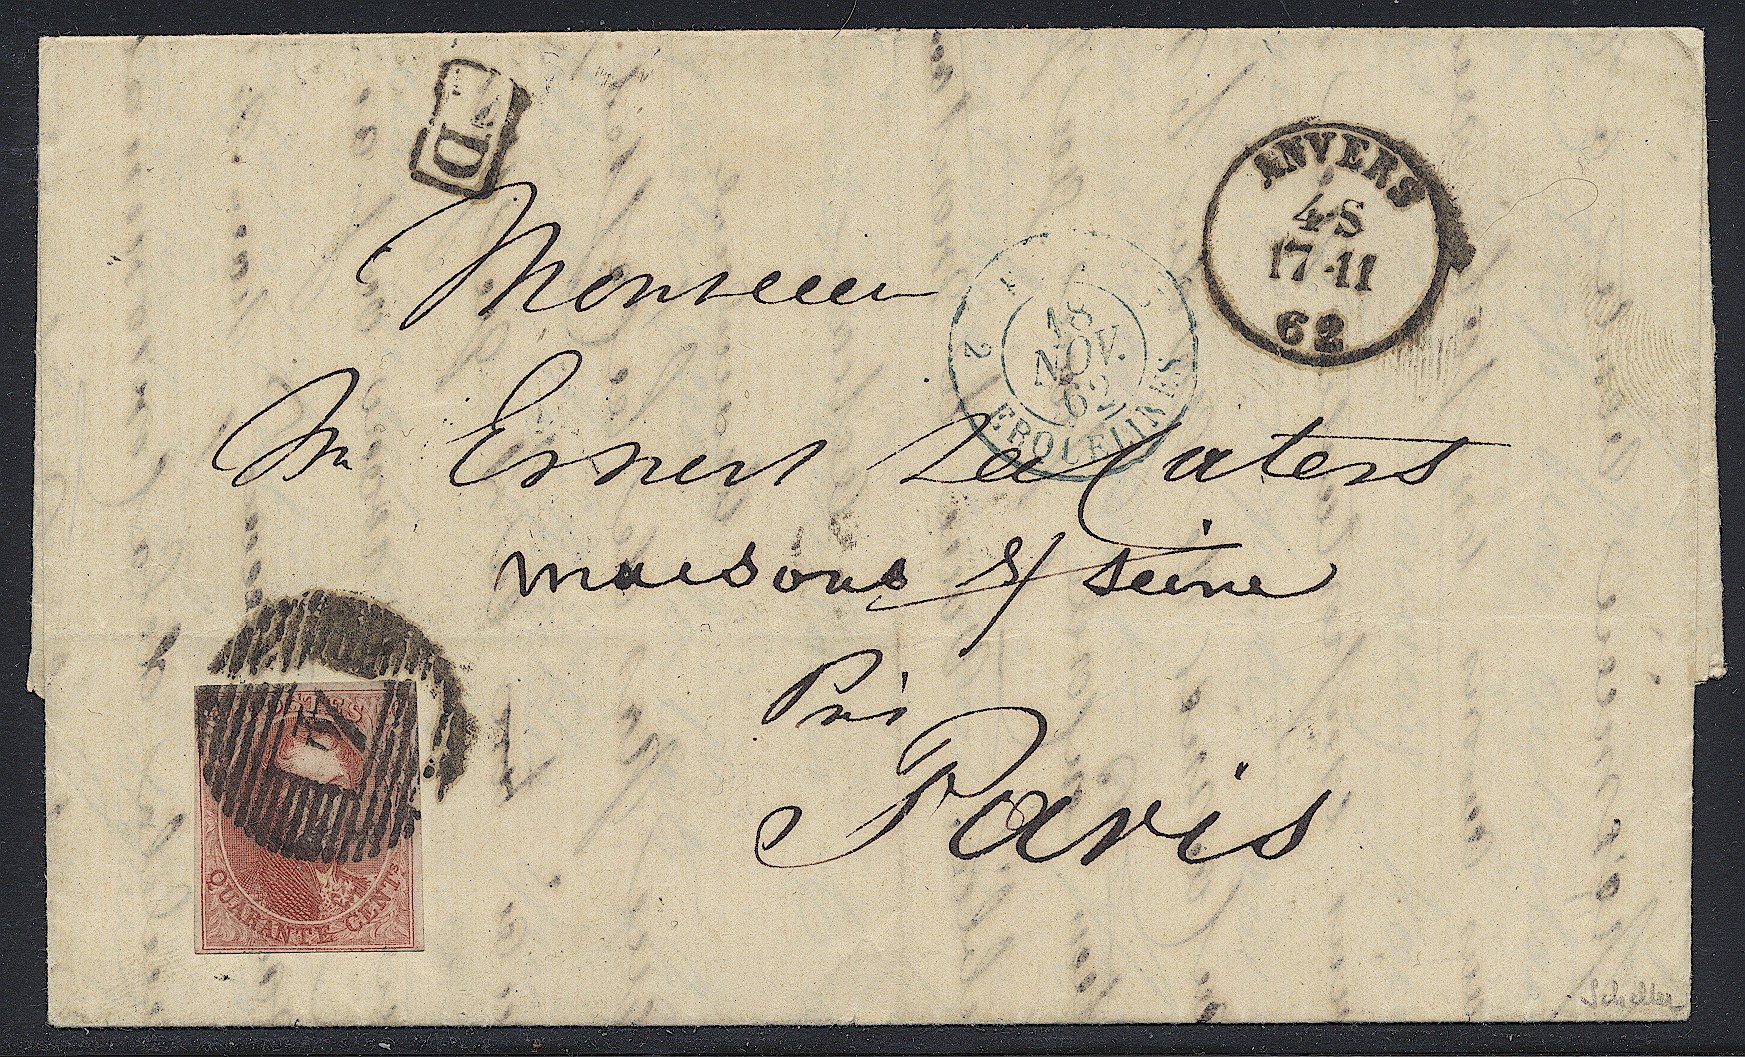 PD
ANVERS
4-S
17-11
62
2
18
NOV.
62
ERQUELINES
Monsieur
Mr Ernest De Caters
maisons s/ seine
Près
Paris
POSTES
QUARANTE CENTS
Scheller